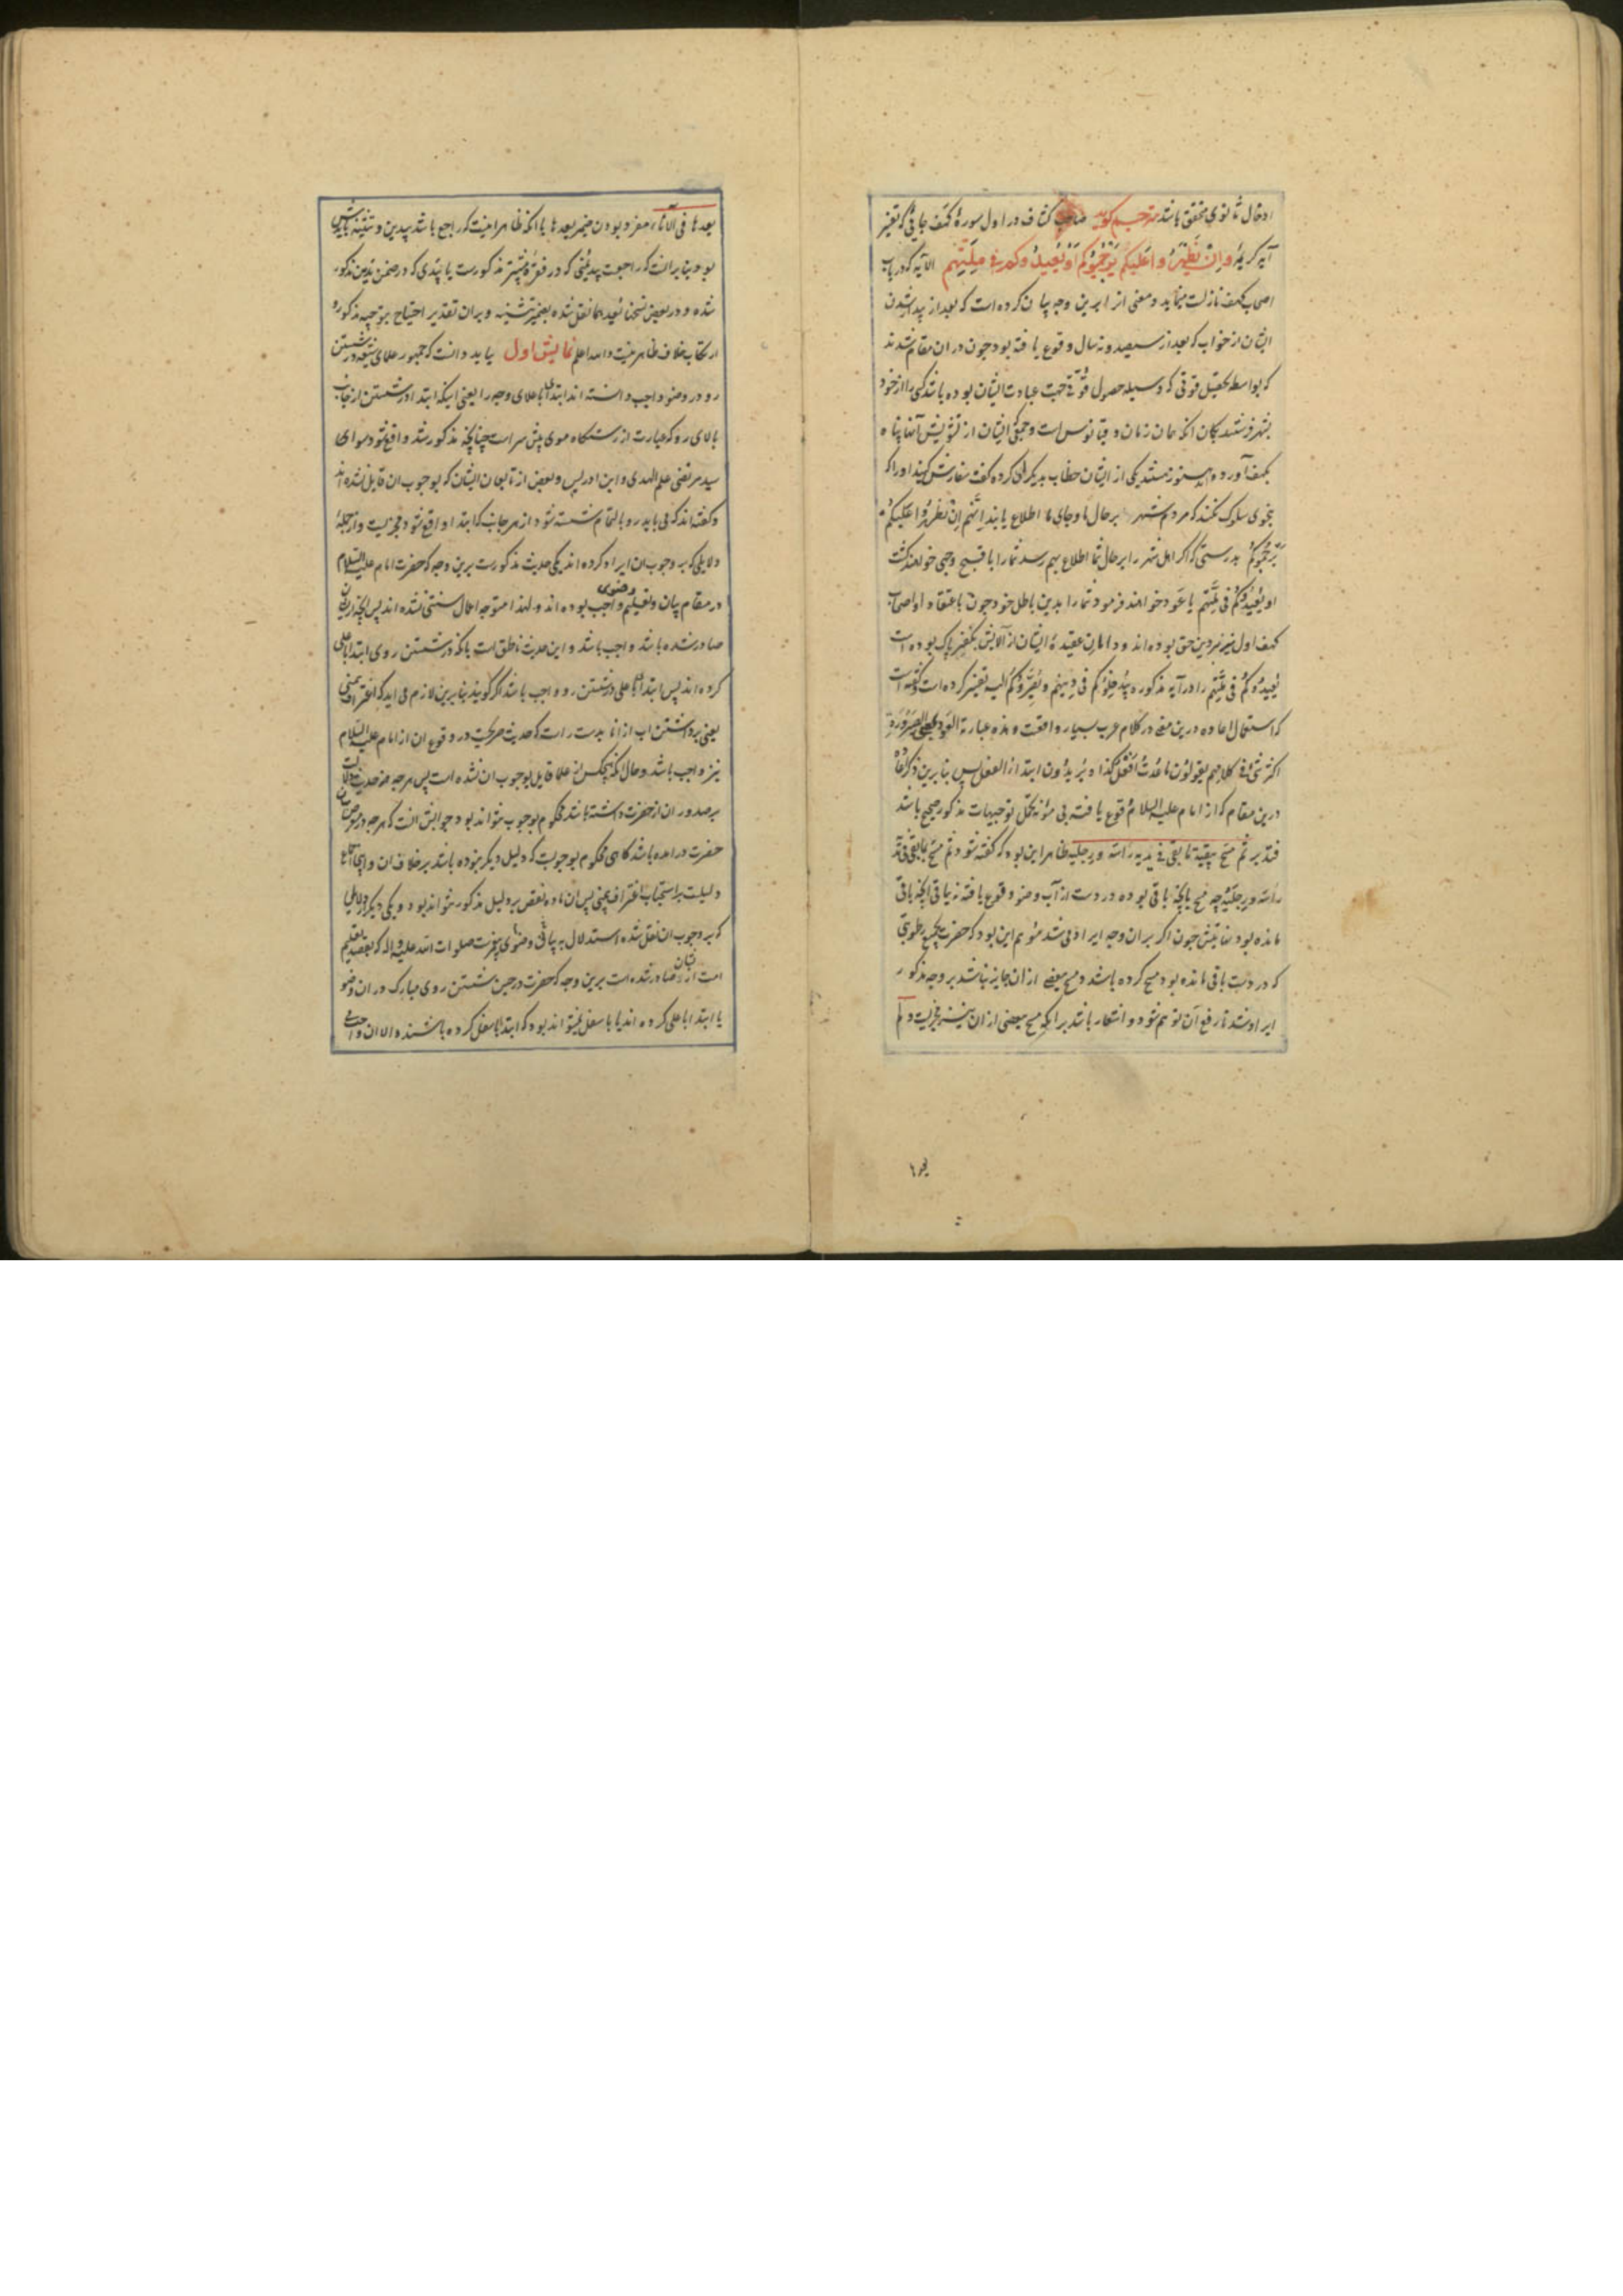 ادخال ثانوی محقق باشد مترجم گوید صاحب کشاف در اول سورهٔ کهف جایی که تفسیر
آیه کریمهٔ و اِنْ یَظْهَرُوا عَلَیْکُم یَرْجُمُوکُم اَوْ یُعِیدُوکُم فِی مِلَّتِهِم الآیه که در باب
اصحاب کهف نازلست مینماید و معنی از ابرین وجه بیان کرده است که بعد از بیدار شدن
ایشان از خواب که بعد از سیصد و نه سال وقوع یافته بود چون در ان مقام شدند
که بواسطه تحصیل قوتی که وسیله حصول قوّت جهت عبادت ایشان بوده باشد کسی را از خود
بشهر فرستند بکمان انکه همان زمان دقیانوس است و جمیع ایشان از تشویش آنها پناه
بکهف آورده اند هنوز هستند یکی از ایشان خطاب بدیگران کرده گفت سفارش کنید او را که
بنحوی سلوک نکند که مردم شهر بر حال ما و جای ما اطلاع یابند اِنَّهُم اِنْ یَظْهَرُوا عَلَیْکُم
یَرْجُمُوکُم بدرستی که اگر اهل شهر را بر حال شما اطلاع بهم رسد شما را با قبح وجهی خواهند کشت
او یُعِیدُوکُم فِی مِلَّتِهِم یا عَود خواهند فرمود شما را بدین باطل خود چون باعتقاد او اصحاب
کهف اول نیز بر دین حق بوده اند و دامان عقیدهٔ ایشان از آلایش بکفر پاک بوده است
یُعِیدُوکُم فِی مِلَّتِهِم را در آیه مذکوره بیُدْخِلُوکُم فی دِینِهِم و یُصَیِّرُوکُم الیه تفسیر کرده است و گفته است
که استعمال اعاده درین معنی در کلام عرب بسیار واقعست و هذه عبارته العَود بمعنی الصَّیْرُورَةِ
اکثر شیءٍ فی کلامهم یقولون مَا عُدْتُ اَفْعَلُ کذا و یُریدُون ابتداءَ الفعل پس بنابرین ذکر اعاده
درین مقام که از امام علیه السلام وقوع یافته بی مؤنه تحمّل توجیهات مذکور صحیح باشد
فتدبر ثم مسح ببقیّة ما بقی فی یدیه رأسه و رجلیه ظاهر این بود که گفته شود ثم مسح بما بقی فی یده
رأسه و رجلیه چه مسح بآنچه باقی بوده در دست از آب وضو وقوع یافته نه بباقی آنچه باقی
مانده بود نهایتش چون اگر بران وجه ایراد می شد موهم این بود که حضرت بجمیع رطوبتی
که در دست باقی مانده بود مسح کرده باشد و مسح ببعضی از ان جایز نباشد بر وجه مذکور
ایراد شد تا رفع آن توهم شود و اشعار باشد بر انکه مسح ببعضی از ان نیز مجزیست و لم
یعد
بعدها فی الاناء مفرد بودن ضمیر بعدها با انکه ظاهر اینست که راجع باشد بیدین و تثنیه بایستش
بود بنابر انست که راجعست بیدیمنی که در فقرهٔ پیشتر مذکورست یا بیدی که در ضمن یدین مذکور
شده و در بعضی نسخها یعیدهما نقل شده بضمیر تثنیه و بران تقدیر احتیاج بتوجیه مذکوره
ارتکاب خلاف ظاهر نیست و الله اعلم نمایش اول بباید دانست که جمهور علمای شیعه در شستن
رو در وضو واجب دانسته اند ابتدا باعلای وجه را یعنی اینکه ابتدا در شستن از جانب
بالای رو که عبارت از رستنگاه موی پیش سر است چنانچه مذکور شد واقع شود سوای
سید مرتضی علم الهدی و ابن ادریس و بعضی از تابعان ایشان که بوجوب ان قایل نشده اند
و گفته اند که می باید رو بالتمام شسته شود از هر جانب که ابتدا واقع شود مجزیست و از جملهٔ
دلایلی که بر وجوب ان ایراد کرده اند یکی حدیث مذکورست برین وجه که حضرت امام علیه السلام
در مقام بیان و تعلیم وضوی واجب بوده اند و لهذا متوجه اعمال سنتی نشده اند پس آنچه از ایشان
صادر شده باشد واجب باشد و این حدیث ناطق است بانکه در شستن روی ابتدا باعلی
کرده اند پس ابتدا باعلی در شستن رو واجب باشد اگر گویند بنابرین لازم می اید که اغتراف بیمنی
یعنی برداشتن اب از انا بدست راست که حدیث صریحست در وقوع ان از امام علیه السلام
نیز واجب باشد و حال انکه هیچکس از علما قایل بوجوب ان نشده است پس هر چه حدیث دلالت
بر صدور ان از حضرت داشته باشد محکوم بوجوب نتواند بود جوابش انست که هر چه در معرض بیان
حضرت درامده باشد گاهی محکوم بوجوبست که دلیل دیگر نبوده باشد بر خلاف ان و اینجا اجماع
دلیلست بر استحباب اغتراف بیمنی پس ان ماده نقض بر دلیل مذکور نتواند بود و یکی دیگر از دلایلی
که بر وجوب ان نقل شده استدلال به بیانی وضوی پیغمبرست صلوات الله علیه و اله که بقصد تعلیم
امت از ایشان صادر شده است برین وجه که حضرت در حین شستن روی مبارک در ان وضو
یا ابتدا باعلی کرده اند یا باسفل نمیتواند بود که ابتدا باسفل کرده باشند و الا ان واجب